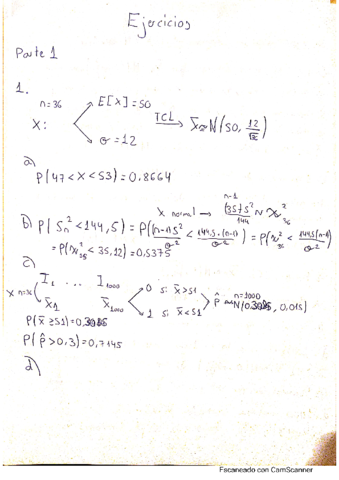 Ejercicios
Parte 1
1.
n=36
X:
E[X]=50
σ=12
TCL
X̄≈N(50, 12/√36)
a)
P(47<X<53)=0,8664
b) P(S_n²<144,5) = P((n-1)S²/σ² < 144,5·(n-1)/σ²) = P(χ²_36 < 144,5(n-1)/σ²)
X normal → (35)S²/144 ~ χ²_36
n-1
= P(χ²_35 < 35,12)=0,5375
c)
I_1 ... I_1000
X n=36
X̄_1 X̄_1000
0 si x̄>51
1 si x̄<51
p̂ ≈ n=1000 N(, 0,015)
P(x̄≥51)=
P(p̂>0,3)=0,7145
d)
Escaneado con CamScanner